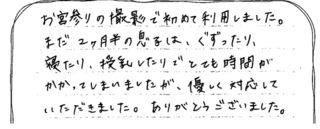 お宮参りの撮影で初めて利用しました。
まだ2ヶ月半の息子は、ぐずったり、
寝たり、授乳したりでとても時間が
かかってしまいましたが、優しく対応して
いただきました。ありがとうございました。